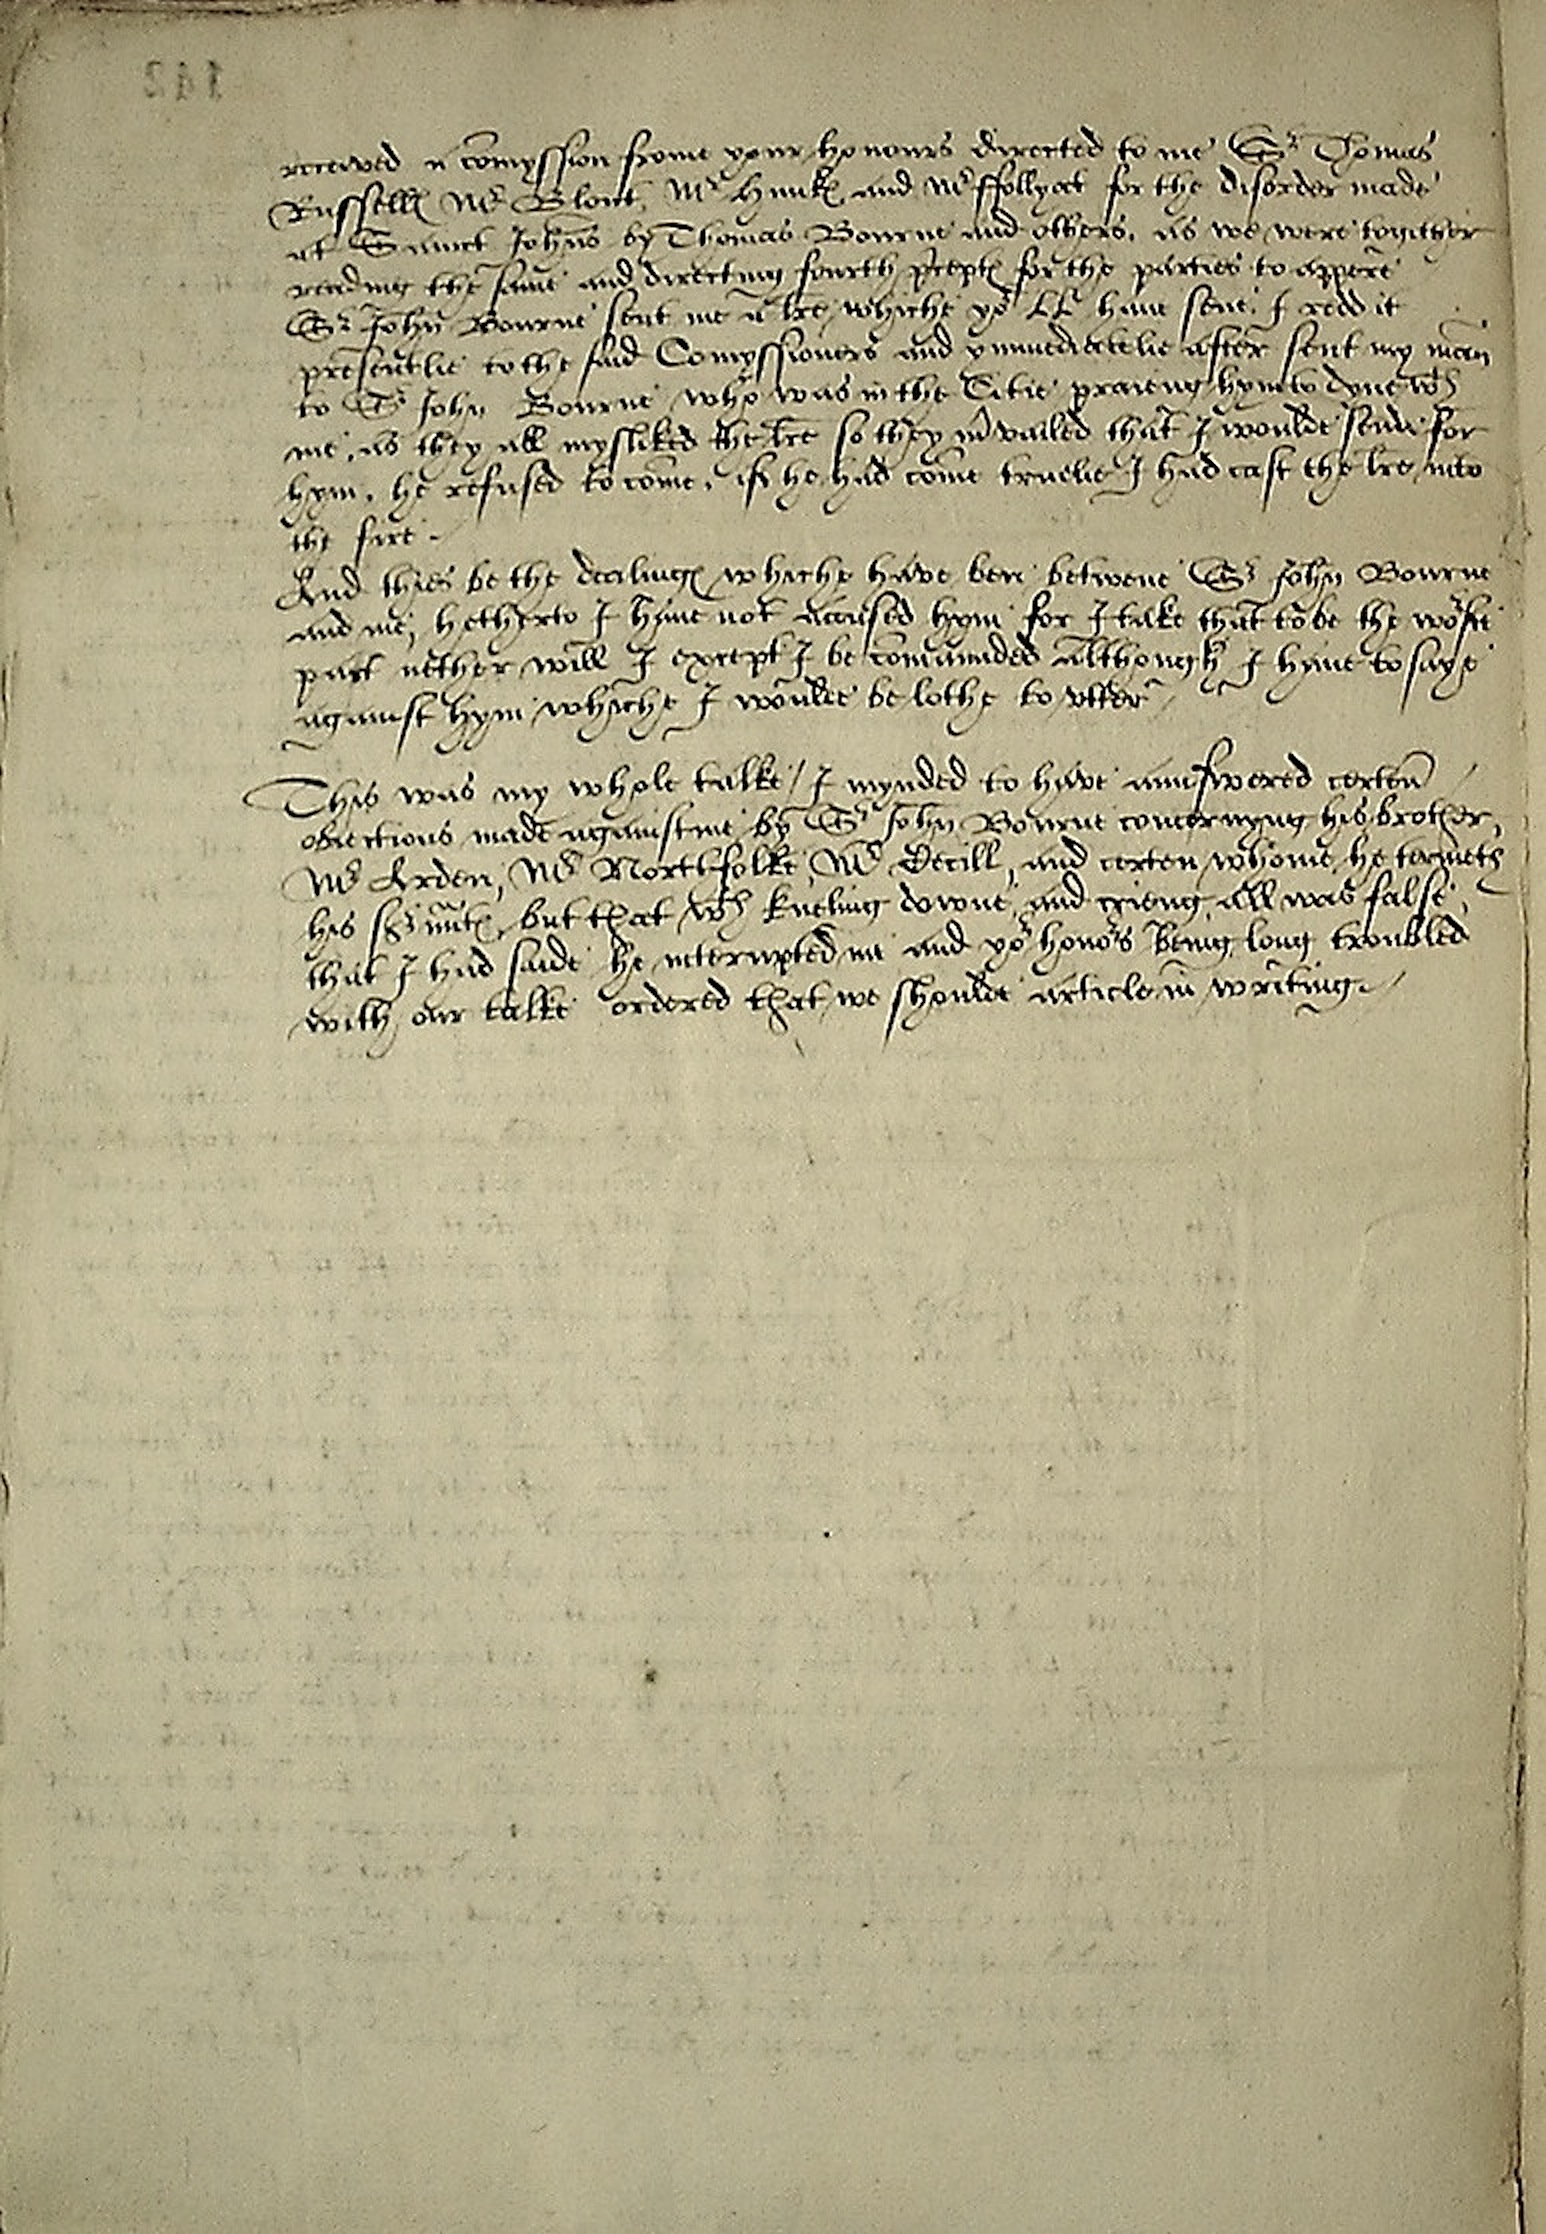 received a comyssion frome your honours directed to me Sr Thomas
Russell Mr Blont, Mr Hunk and Mr ffollyat for the disorder made
at Sainct Johns by Thomas Bourne and others. as we were togither
reading the same and directing fourth precept for the parties to appere
Sr John Bourne sent me a lre whiche yor LL have sene. I redd it
presentlie to the said Comyssioners and ymmediatelie after sent my man
to Sr John Bourne who was in the Citie praieng hym to dyne wth
me, as they all myslyked the lre so they mrvailed that I woulde sende for
hym. he refused to come. if he had come truelie I had cast the lre into
the fire.
And thies be the dealing whiche have ben betwene Sr John Bourne
and me, hetherto I have not accused hym for I take that to be the worste
part nether will I except I be comaunded although I have to saye
against hym whiche I woulde be lothe to utter
This was my whole talke / I mynded to have aunswered certen
obiections made against me by Sr John Bourne concernyng his brother,
Mr Arden, Mr Northfolke, Mr Decill, and certen whome he termeth
his srunt, but that wth kneling downe, and crieng, all was false,
that I had saide he interupted me and yor honors being long troubled
with our talke ordered that we shoulde article in writing.